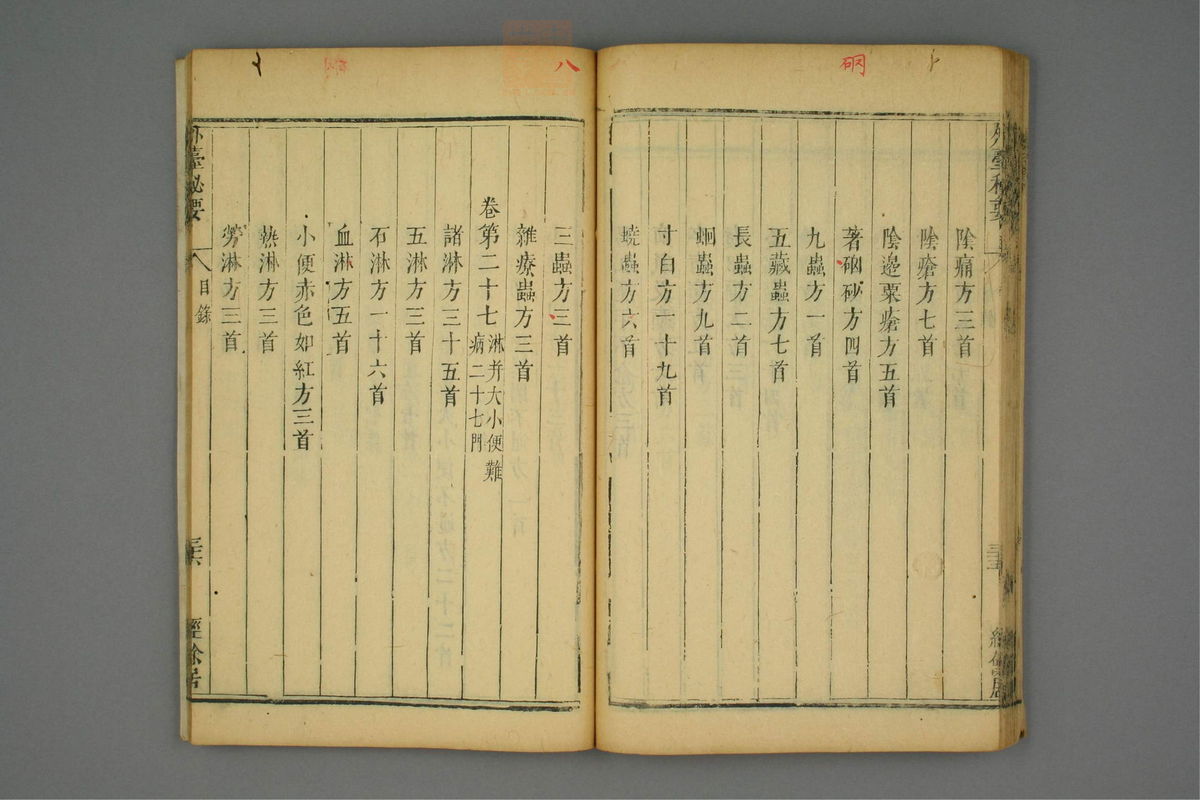 硇
外臺秘要
目
三五
經餘居
陰痛方三首
陰瘡方七首
陰邊粟瘡方五首
著硇砂方四首
九蟲方一首
五藏蟲方七首
長蟲方二首
蚘蟲方九首
寸白方一十九首
蟯蟲方六首
八
三蟲方三首
雜療蟲方三首
卷第二十七
淋并大小便難
病二十七門
諸淋方三十五首
五淋方三首
石淋方一十六首
血淋方五首
小便赤色如紅方三首
熱淋方三首
勞淋方三首
外臺秘要
目錄
三六
經餘居